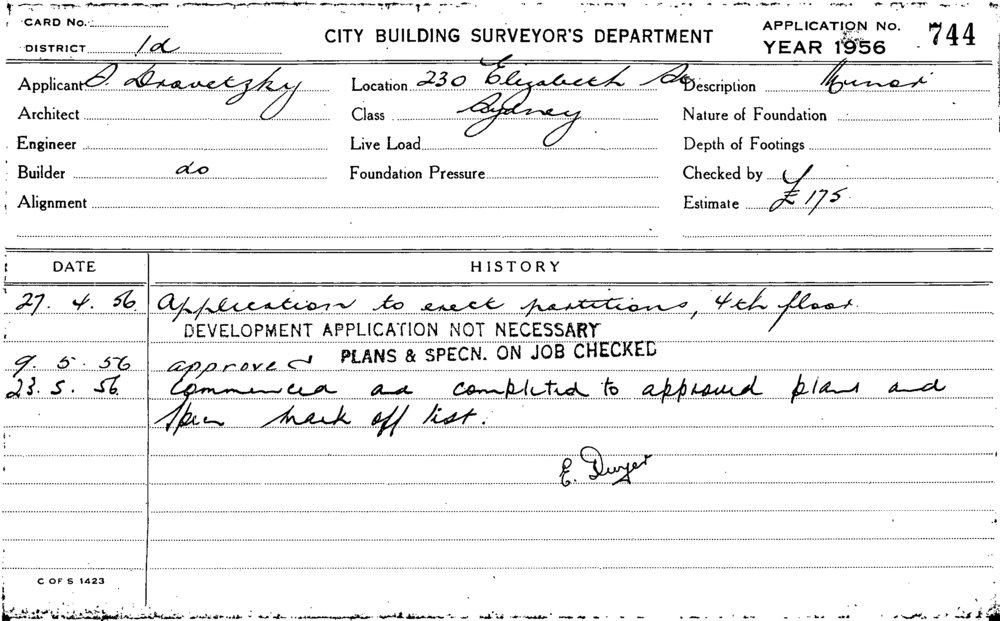 CARD No.
DISTRICT 1d
CITY BUILDING SURVEYOR'S DEPARTMENT
APPLICATION No. 744
YEAR 1956
Applicant Dravetzky
Location 230 Elizabeth St
Description Minor
Architect
Class Sydney
Nature of Foundation
Engineer
Live Load
Depth of Footings
Builder do
Foundation Pressure
Checked by
Alignment
Estimate £175
DATE HISTORY
27. 4. 56 Application to erect partitions, 4th floor.
DEVELOPMENT APPLICATION NOT NECESSARY
9. 5. 56 approved PLANS & SPECN. ON JOB CHECKED
23. 5. 56. Commenced and completed to approved plans and
specn mark off list.
E. Dwyer
C OF S 1423